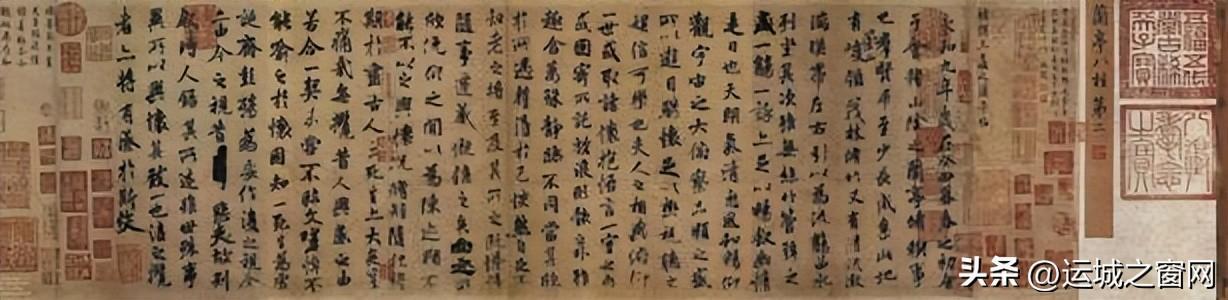 五福五代堂古稀天子寶
八徵耄念之寶
蘭亭八柱第二
永和九年歲在癸丑暮春之初會
于會稽山陰之蘭亭脩禊事
也群賢畢至少長咸集此地
有崇山峻領茂林脩竹又有清流激
湍暎帶左右引以為流觴曲水
列坐其次雖無絲竹管弦之
盛一觴一詠亦足以暢叙幽情
是日也天朗氣清惠風和暢仰
觀宇宙之大俯察品類之盛
所以遊目騁懷足以極視聽之
娛信可樂也夫人之相與俯仰
一世或取諸懷抱悟言一室之內
或因寄所託放浪形骸之外雖
趣舍萬殊靜躁不同當其欣
於所遇蹔得於己快然自足不
知老之將至及其所之既惓情
隨事遷感慨係之矣向之所
欣俛仰之間以為陳迹猶不
能不以之興懷況脩短隨化終
期於盡古人云死生亦大矣豈
不痛哉每攬昔人興感之由
若合一契未嘗不臨文嗟悼不
能喻之於懷固知一死生為虛
誕齊彭殤為妄作後之視今
亦由今之視昔悲夫故列
叙時人錄其所述雖世殊事
異所以興懷其致一也後之攬
者亦將有感於斯文
头条 @运城之窗网